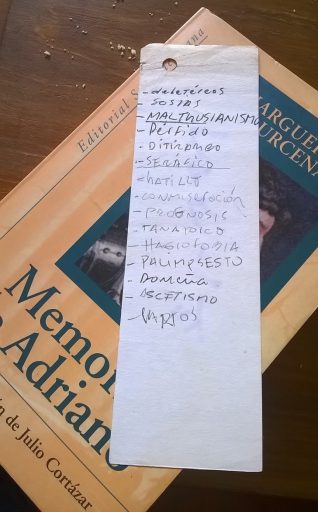 Editorial S
ana
ARGUER
URCENA
- deletéreos
- SOSIAS
- MALTHUSIANISMO
- Pérfido
- DITIRAMBO
- SERAFICO
- CONMISERACIÓN
- PROGNOSIS
- TANATOICO
- HAGIOFOBIA
- PALIMPSESTO
- DOMEÑA
- ASCETISMO
Memor
Adriano
n de Julio Cortázar